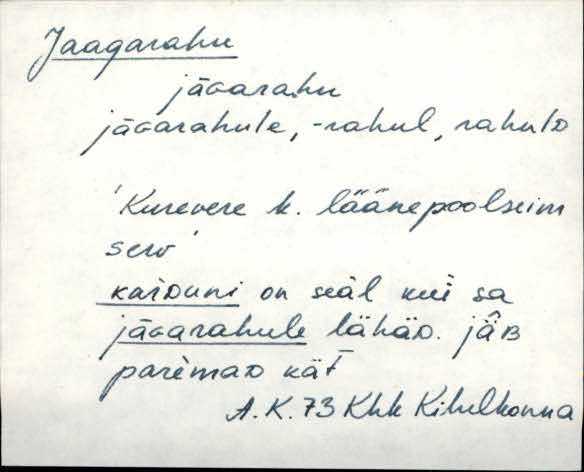 Jaagarahu
jāGarahu
jāGarahule, -rahul, rahulD
'Kurevere k. läänepoolseim
serv'
karDuni on seäl kui sa
jāGarahule lähäD. jä̂B
parèmaD kät̄
A.K. 73 Khk Kihelkonna